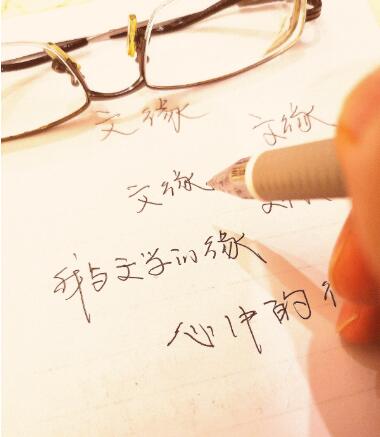 文缘 文缘
文缘 文
我与文学的缘
心中的